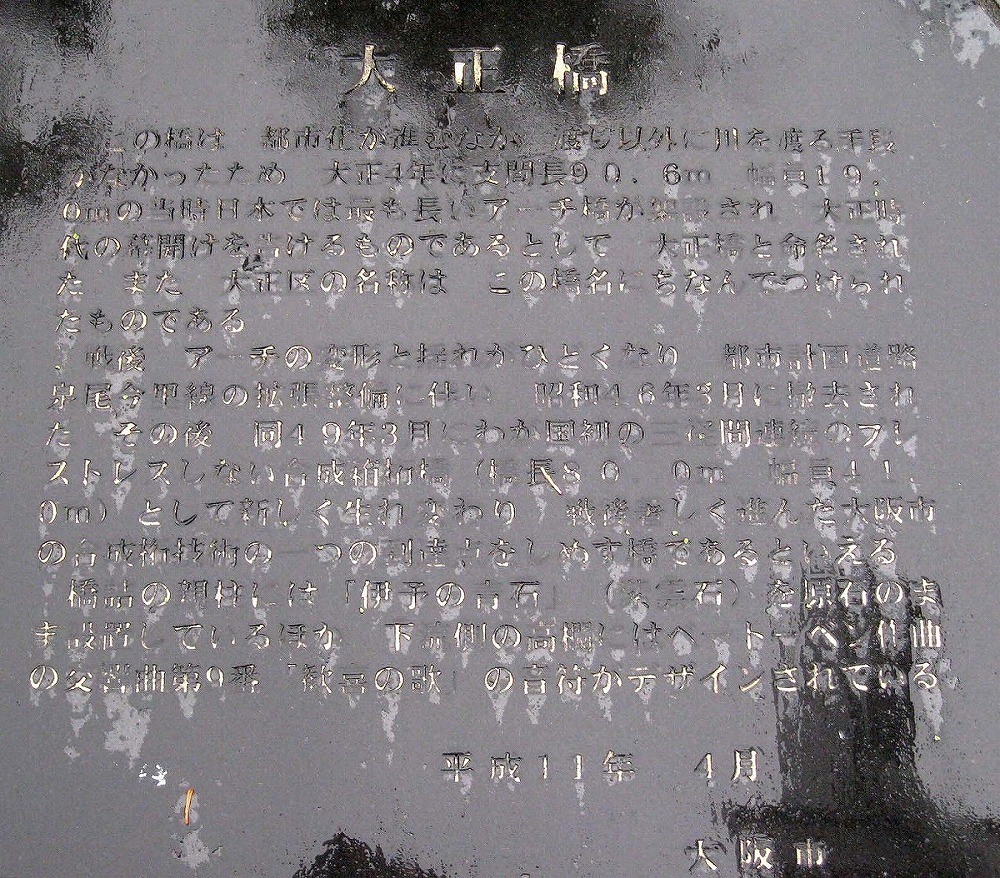 大正橋
この橋は 都市化が進むなか 渡し以外に川を渡る手段
がなかったため 大正4年に支間長90.6m 幅員19.
0mの当時日本では最も長いアーチ橋が架設され 大正時
代の幕開けを告げるものであるとして 大正橋と命名され
た また 大正区の名称は この橋名にちなんでつけられ
たものである
戦後 アーチの変形と揺れがひどくなり 都市計画道路
泉尾今里線の拡張整備に伴い 昭和46年3月に撤去され
た その後 同49年3月にわが国初の三径間連続のプレ
ストレスしない合成箱桁橋(橋長80.0m 幅員41.
0m)として新しく生れ変わり 戦後著しく進んだ大阪市
の合成桁技術の一つの到達点をしめす橋であるといえる
橋詰の親柱には「伊予の青石」 石)を原石のま
ま設置しているほか 下流側の高欄にはベートーベン作曲
の交響曲第9番「歓喜の歌」の音符がデザインされている
平成11年 4月
大阪市